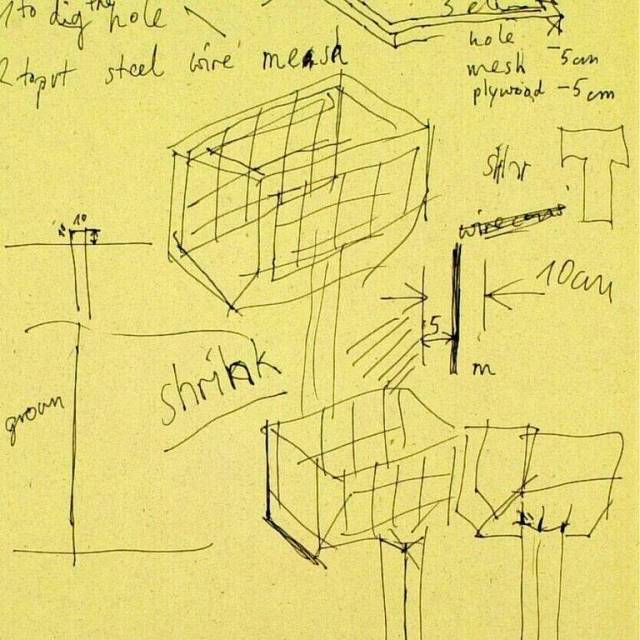 1 to dig the hole
2 to put steel wire meash
hole
mesh -5cm
plywood -5cm
10
10cm
5
m
shrink
groun